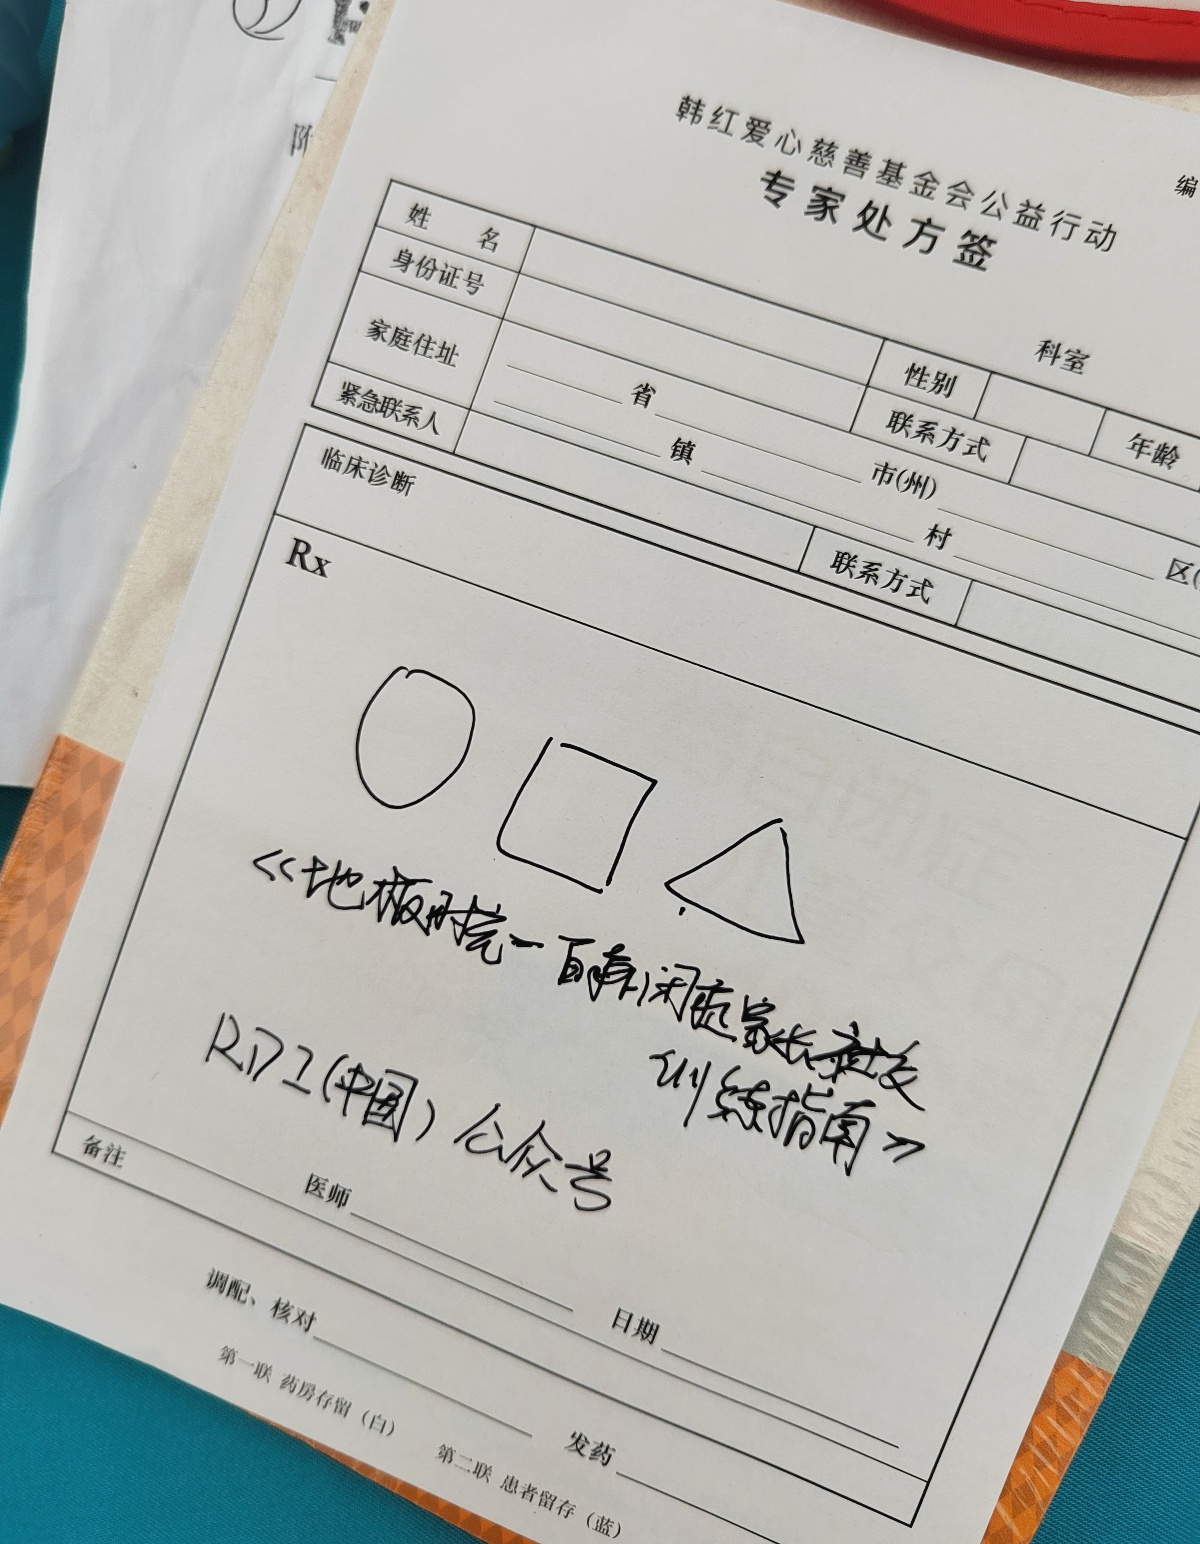 韩红爱心慈善基金会公益行动
编
专家处方签
科室
姓 名
性别
年龄
身份证号
联系方式
家庭住址
省
市(州)
区(
镇
村
紧急联系人
联系方式
临床诊断
Rx
《地板时光一自闭症家长社交
训练指南》
RDI(中国)公众号
备注
医师
日期
调配、核对
发药
第一联 药房存留（白）
第二联 患者留存（蓝）
附